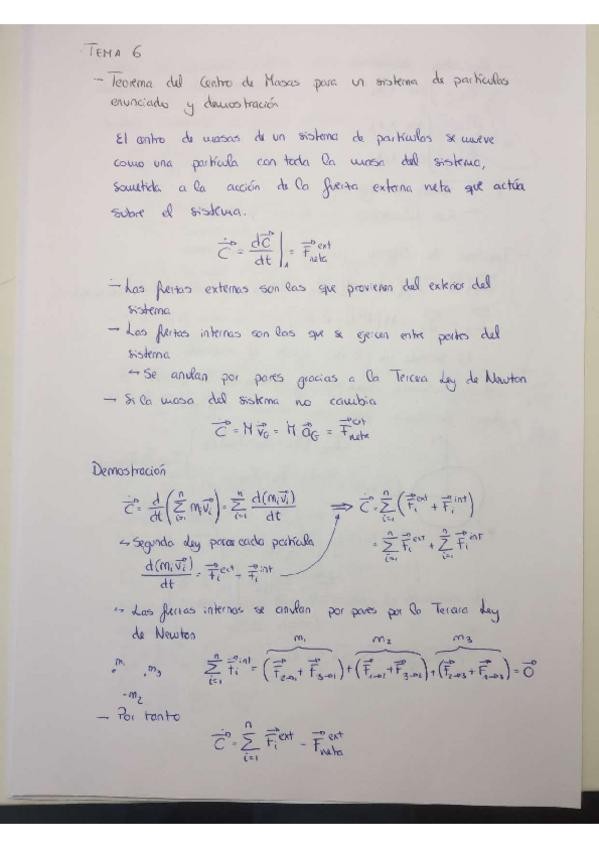 TEMA 6
- Teorema del Centro de Masas para un sistema de partículas
enunciado y demostración
El centro de masas de un sistema de partículas se mueve
como una partícula con toda la masa del sistema,
sometida a la acción de la fuerza externa neta que actúa
sobre el sistema.
\dot{\vec{C}} = \frac{d\vec{C}}{dt}|_A = \vec{F}_{neta}^{ext}
- Las fuerzas externas son las que provienen del exterior del
sistema
- Las fuerzas internas son las que se ejercen entre partes del
sistema
↳ Se anulan por pares gracias a la Tercera Ley de Newton
- Si la masa del sistema no cambia
\dot{\vec{C}} = M \dot{\vec{v}}_G = M \vec{a}_G = \vec{F}_{neta}^{ext}
Demostración
\dot{\vec{C}} = \frac{d}{dt}(\sum_{i=1}^{n} m_i\vec{v}_i) = \sum_{i=1}^{n} \frac{d(m_i\vec{v}_i)}{dt} ⇒ \dot{\vec{C}} = \sum_{i=1}^{n}(\vec{F}_i^{ext} + \vec{F}_i^{int})
= \sum_{i=1}^{n}\vec{F}_i^{ext} + \sum_{i=1}^{n}\vec{F}_i^{int}
↳ Segunda Ley para cada partícula
\frac{d(m_i\vec{v}_i)}{dt} = \vec{F}_i^{ext} + \vec{F}_i^{int}
↳ Las fuerzas internas se anulan por pares por la Tercera Ley
de Newton
m_1 m_2 m_3
m_1 m_3 \sum_{i=1}^{n}\vec{F}_i^{int} = (\vec{F}_{2→1} + \vec{F}_{3→1}) + (\vec{F}_{1→2} + \vec{F}_{3→2}) + (\vec{F}_{2→3} + \vec{F}_{1→3}) = \vec{0}
m_2
- Por tanto
\dot{\vec{C}} = \sum_{i=1}^{n}\vec{F}_i^{ext} = \vec{F}_{neta}^{ext}